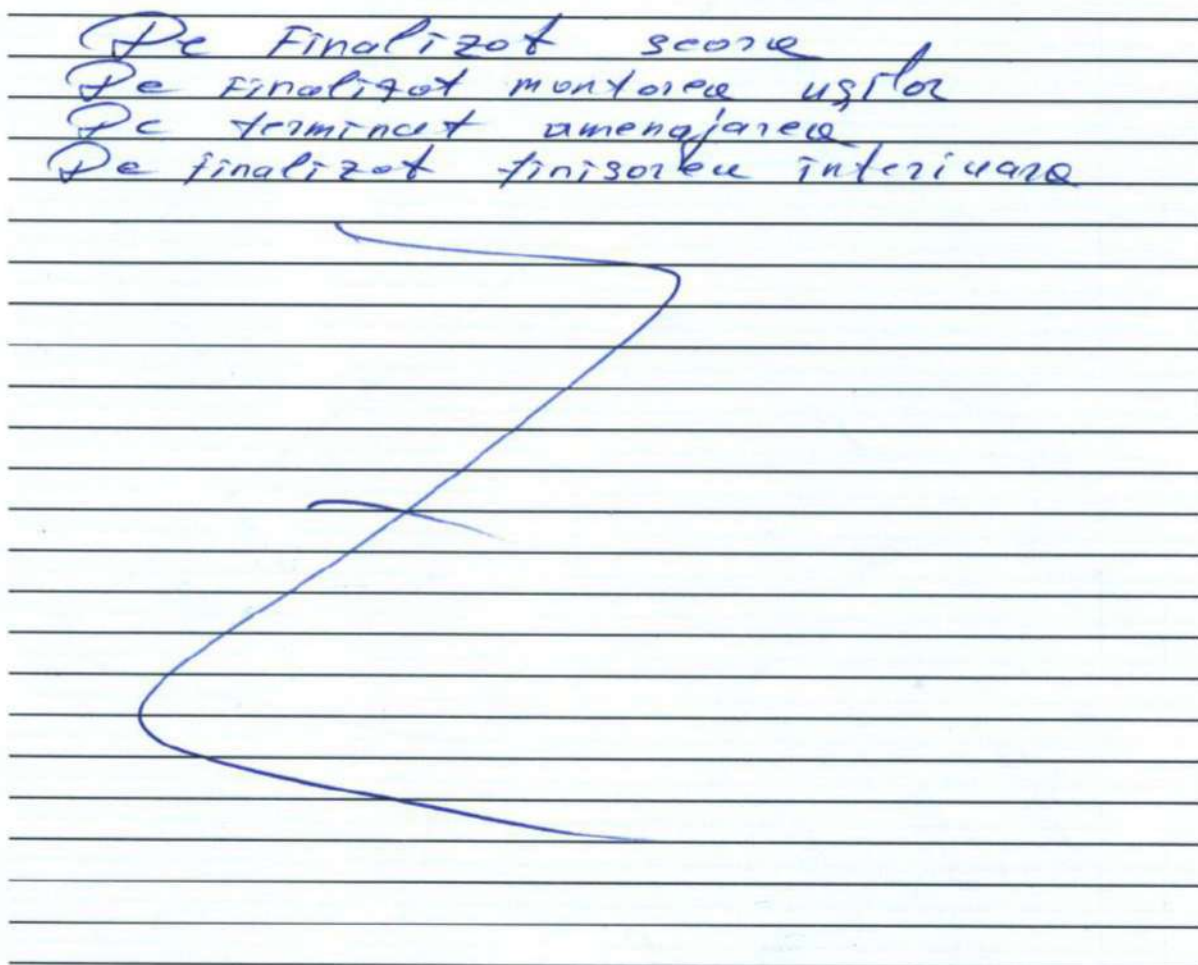 De Finalizat scara
De Finalizat montarea ușilor
De terminat amenajarea
De finalizat finisarea interioara